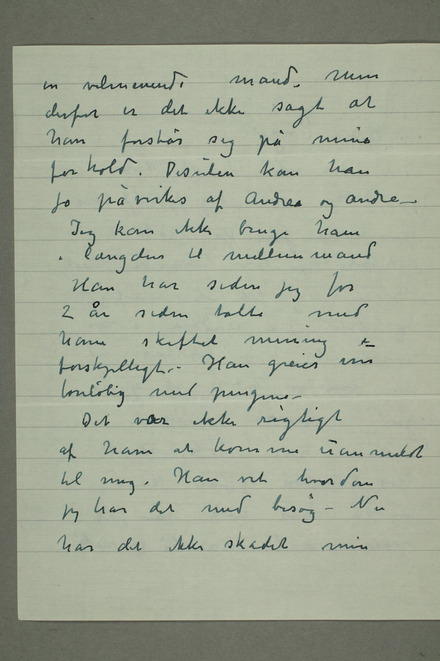 en velmenende mand. Men
derfor er det ikke sagt at
han forstår sig på mine
forhold. Desuden kan han
jo påvirkes af Andrea og andre —
Jeg kan ikke bruge ham
i længden til mellemmand
Han har siden jeg for
2 år siden talte med
ham skiftet mening
forskjelligt. Han greier
foreløbig med pengene —
Det var ikke rigtigt
af ham at komme uanmeldt
til mig. Han vet hvordan
jeg har det med besøg — Nu
har det ikke skadet min